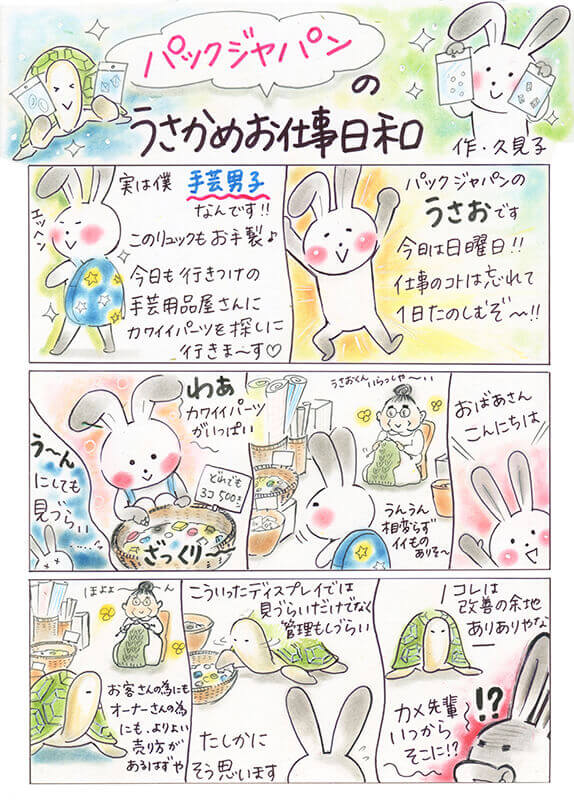 パックジャパン
の
うさかめお仕事日和
作・久見子
パックジャパンの
うさおです
今日は日曜日!!
仕事のコトは忘れて
1日たのしむぞ〜!!
実は僕 手芸男子
なんです!!
このリュックもお手製♪
今日も行きつけの
手芸用品屋さんに
カワイイパーツを探しに
行きま〜す♡
エッヘン
おばあさん
こんにちは
うさおくんいらっしゃ〜い
うんうん
相変らず
イイもの
ありる〜
わぁ
カワイイパーツ
がいっぱい
どれでも
3コ500えん
ざっくり〜
う〜ん
にしても
見づらい
コレは
改善の余地
ありありやな
!?
カメ先輩
いつから
そこに!?
こういったディスプレイでは
見づらいだけでなく
管理もしづらい
たしかに
そう思います
ほよよ
お客さんの為にも
オーナーさんの為
にも、よりよい
売り方が
あるはずや